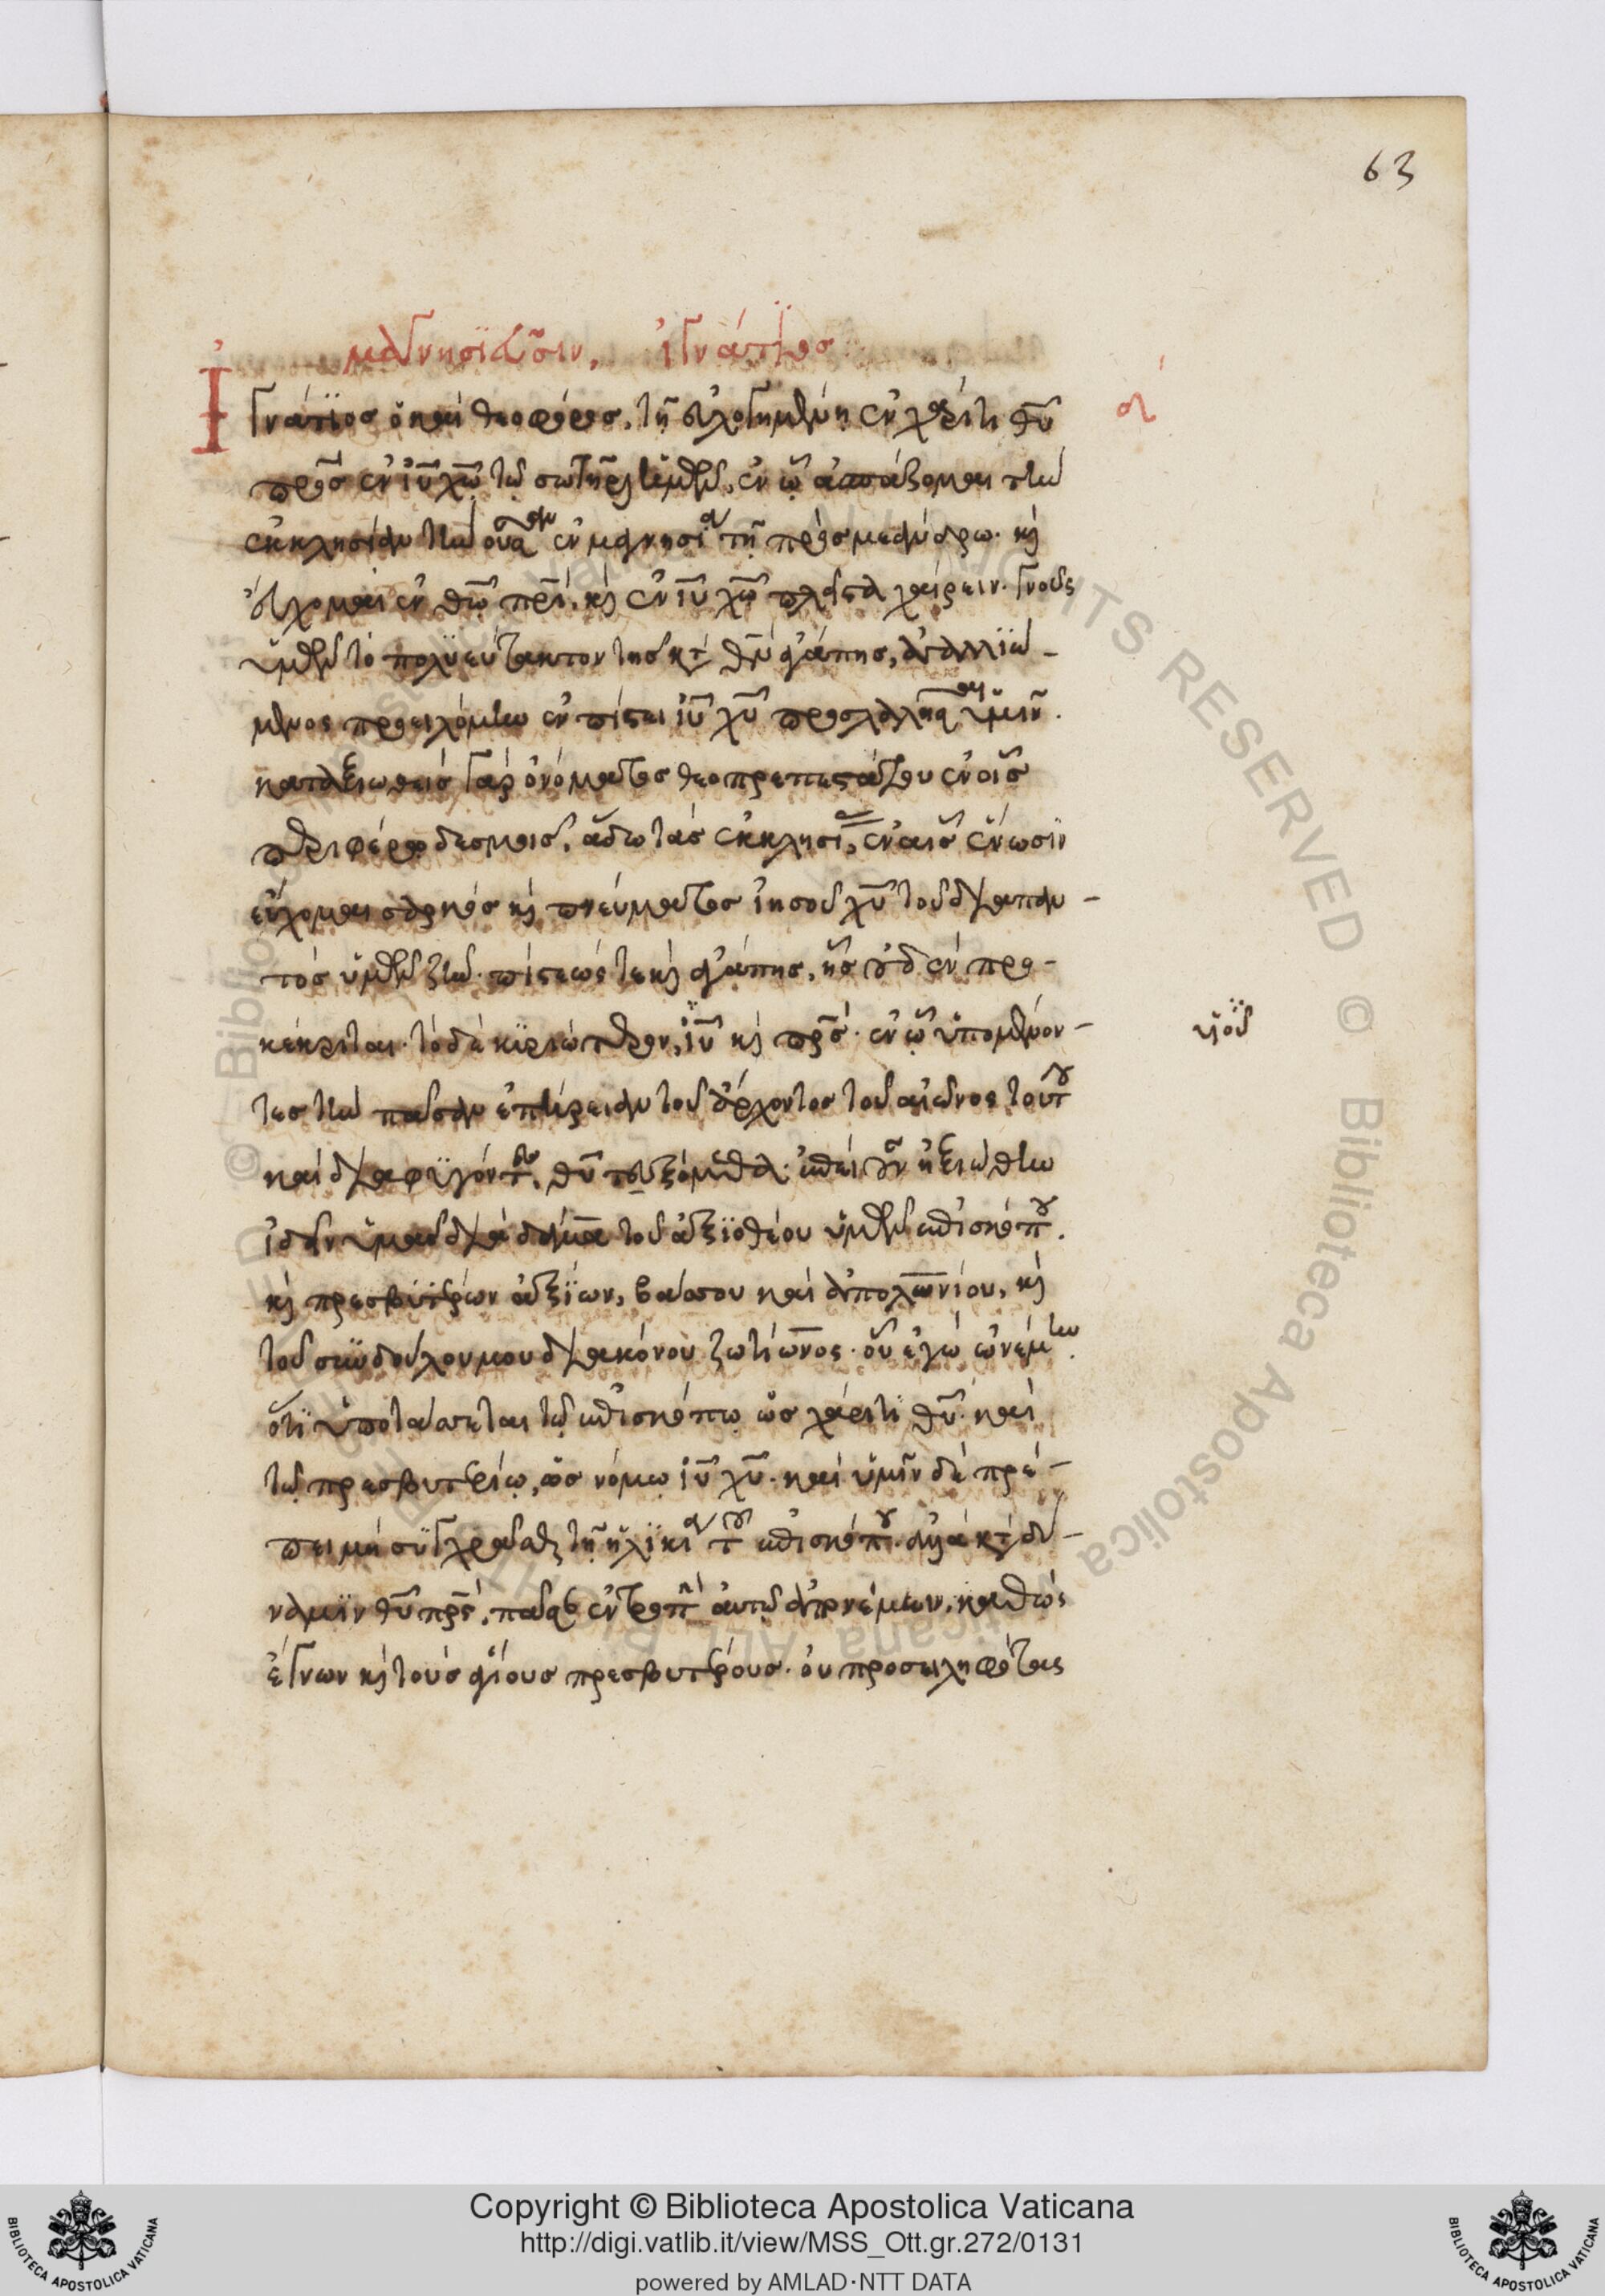 63
μαγνησϊεῦσιν, ἰγνάτϊος
Ἰγνάτϊος ὁ καὶ θεοφόρος, τῇ εὐλογημένη ἐν χάριτι θῦ
α
πρὸς ἐν ἰῦ χῶ τῷ σωτῆρι ἡμῶν, ἐν ᾧ ἀσπάζομαι τὴν
ἐκκλησίαν τὴν οὖσαν ἐν μαγνησία τῇ πρὸς μεάνδρω. κὶ
εὔχομαι ἐν θῶ πρὶ, κὶ ἐν ἰῦ χῶ πλεῖστα χαίρειν. γνοὺς
ὑμῶν τὸ πολϋεύτακτον τῆς κτ θῦ ἀγάπης, ἀγαλλϊώ-
μενος προειλόμην ἐν πίστει ἰῦ χῦ προσλαλῆσαι ὑμῖν.
καταξιωθεὶς γὰρ ὀνόματος θεοπρεπεστάτου ἐν οἷς
περιφέρω δεσμοῖς, ἄδω τὰς ἐκκλησίας, ἐν αἷς ἕνωσιν
εὔχομαι σαρκὸς κὶ πνεύματος ἰησοῦ χῦ τοῦ διαπαν-
τὸς ὑμῶν ζῆν. πίστεώς τε κὶ ἀγάπης, ἧς οὐδὲν προ-
κέκριται. τὸ δὲ κϋριώτερον, ἰῦ κὶ πρς. ἐν ᾧ ὑπομένον-
υἱοῦ
τες τὴν πᾶσαν ἐπήρειαν τοῦ ἄρχοντος τοῦ αἰῶνος τούτου
καὶ διαφϋγόντες, θῦ τευξόμεθα. ἐπεὶ οὖν ἠξιώθην
ἰδεῖν ὑμᾶς διὰ δαμᾶ τοῦ ἀξϊοθέου ὑμῶν ἐπισκόπου.
κὶ πρεσβϋτέρων ἀξΐων, βάσσου καὶ ἀπολωνίου, κὶ
τοῦ συνδούλου μου διακόνου ζωτίωνος. οὗ ἐγὼ ὠνέμην.
ὅτϊ ὑποτάσσεται τῷ ἐπισκόπω ὡς χάριτϊ θῦ. καὶ
τῷ πρεσβυτερίῳ, ὡς νόμω ἰῦ χῦ. καὶ ὑμῖν δὲ πρέ-
πει μὴ σϋγχρᾶσθαι τῇ ἡλϊκία τοῦ ἐπισκόπου. ἀλλὰ κτ δύ-
ναμϊν θῦ πρς, πᾶσαν ἐντροπὴν ἀυτῷ ἀπονέμειν, καθὼς
ἔγνων κὶ τοὺς ἁγίους πρεσβυτέρους. ὀυ προσειληφότας
Copyright © Biblioteca Apostolica Vaticana
http://digi.vatlib.it/view/MSS_Ott.gr.272/0131
powered by AMLAD·NTT DATA
BIBLIOTECA APOSTOLICA VATICANA
BIBLIOTECA APOSTOLICA VATICANA